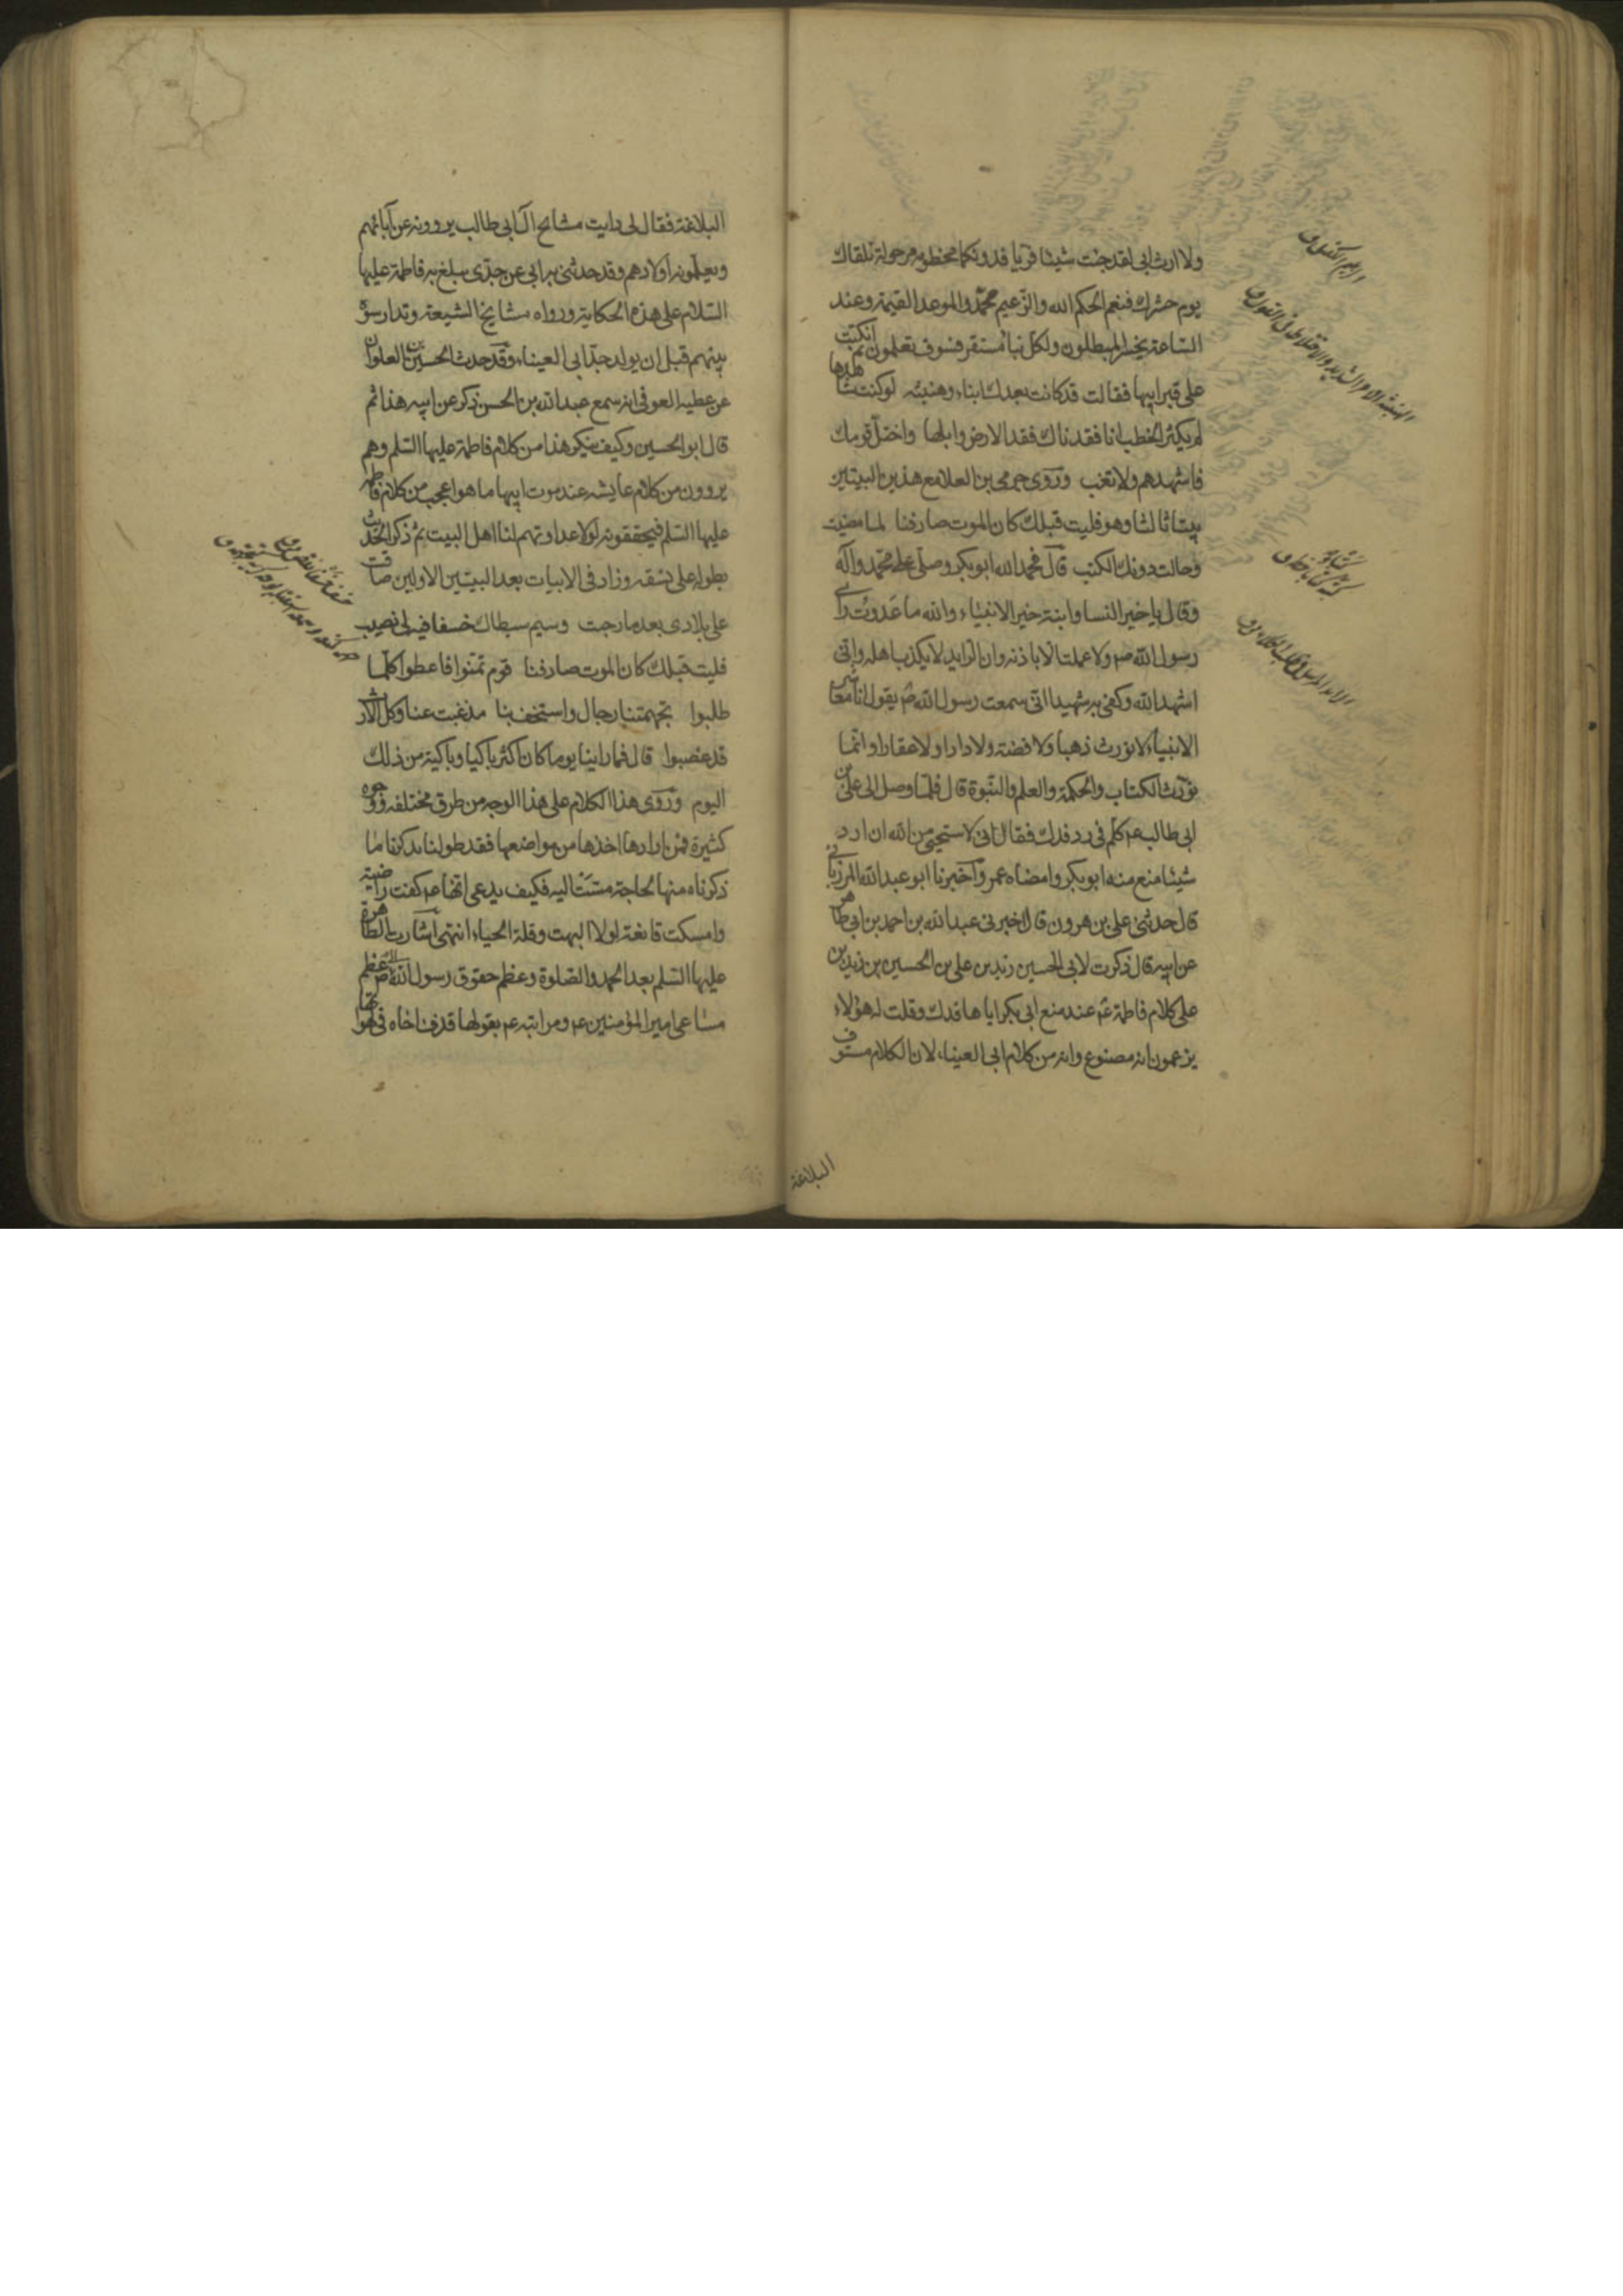 ولا ارث ابى لقد جئت شيئا فريا فدونكها مخطومة مرحولة تلقاك
يوم حشرك فنعم الحكم الله والزعيم محمد والموعد القيمة وعند
الساعة يخسر المبطلون ولكل نبأ مستقر فسوف تعلمون ثم انكبت
على قبر ابيها فقالت قد كانت بعدك ابناء وهنبثه لو كنت شاهدها
لم يكثر الخطب انا فقدناك فقد الارض وابلها واختل قومك
فاشهدهم ولا تغب وروى حرمى بن العلا مع هذين البيتين
بيتا ثالثا وهو فليت قبلك كان الموت صادفنا لما مضيت
وحالت دونك الكتب قال فحمد الله ابو بكر وصلى على محمد وآله
وقال يا خير النسا وابنة خير الانبياء والله ما عدوت راى
رسول الله ص ولا عملت الا باذنه وان الرايد لا يكذب اهله وانى
اشهد الله وكفى به شهيدا انى سمعت رسول الله ص يقول انا معاشر
الانبياء لا نورث ذهبا ولا فضة ولا دارا ولا عقارا وانما
نورث الكتاب والحكمة والعلم والنبوة قال فلما وصل الى على بن
ابى طالب ع كلم فى رد فدك فقال انى لاستحيى من الله ان ارد
شيئا منع منه ابو بكر وامضاه عمر وأخبرنا ابو عبد الله المرزبانى
قال حدثنى على بن هرون قال اخبرنى عبد الله بن احمد بن ابى طاهر
عن ابيه قال ذكرت لابى الحسين زيد بن على بن الحسين بن زيد بن
على كلام فاطمة ع عند منع ابى بكر اياها فدك وقلت له هؤلاء
يزعمون انه مصنوع وانه من كلام ابى العيناء لان الكلام مستوف
البلاغة
البلاغة فقال لى رايت مشايخ آل ابى طالب يروونه عن آبائهم
ويعلمونه اولادهم وقد حدثنى به ابى عن جدى يبلغ به فاطمة عليها
السلام على هذه الحكاية ورواه مشايخ الشيعة وتدارسوه
بينهم قبل ان يولد جد ابى العيناء وقد حدث الحسين بن العلوان
عن عطيه العوفى انه سمع عبد الله بن الحسن ذكر عن ابيه هذا ثم
قال ابو الحسين وكيف ينكر هذا من كلام فاطمة عليها السلم وهم
يروون من كلام عايشه عند موت ابيها ما هو اعجب من كلام فاطمه
عليها السلم فيحققونه لولا عداوتهم لنا اهل البيت ثم ذكر الحديث
بطوله على نسقه وزاد فى الابيات بعد البيتين الاولين ضاقت
على بلادى بعد ما رحبت وسيم سبطاك خسفا فيه لى نصيب
فليت قبلك كان الموت صادفنا قوم تمنوا فاعطوا كلما
طلبوا تجهمتنا رجال واستخف بنا مذ غبت عنا وكل الارث
قد غصبوا قال فما راينا يوما كان اكثر باكيا وباكية من ذلك
اليوم وروى هذا الكلام على هذا الوجه من طرق مختلفه ووجوه
كثيرة فمن ارادها اخذها من مواضعها فقد طولنا بذكرنا ما
ذكرناه منها لحاجة مست اليه فكيف يدعى انها ع كفت راضية
وامسكت قانعة لولا البهت وقلة الحياء انتهى أشارت الطاهرة
عليها السلم بعد الحمد والصلوة وعظم حقوق رسول الله ص عظم
مساعى امير المؤمنين ع ومراتبه ع بقولها قذف اخاه فى لهواتها